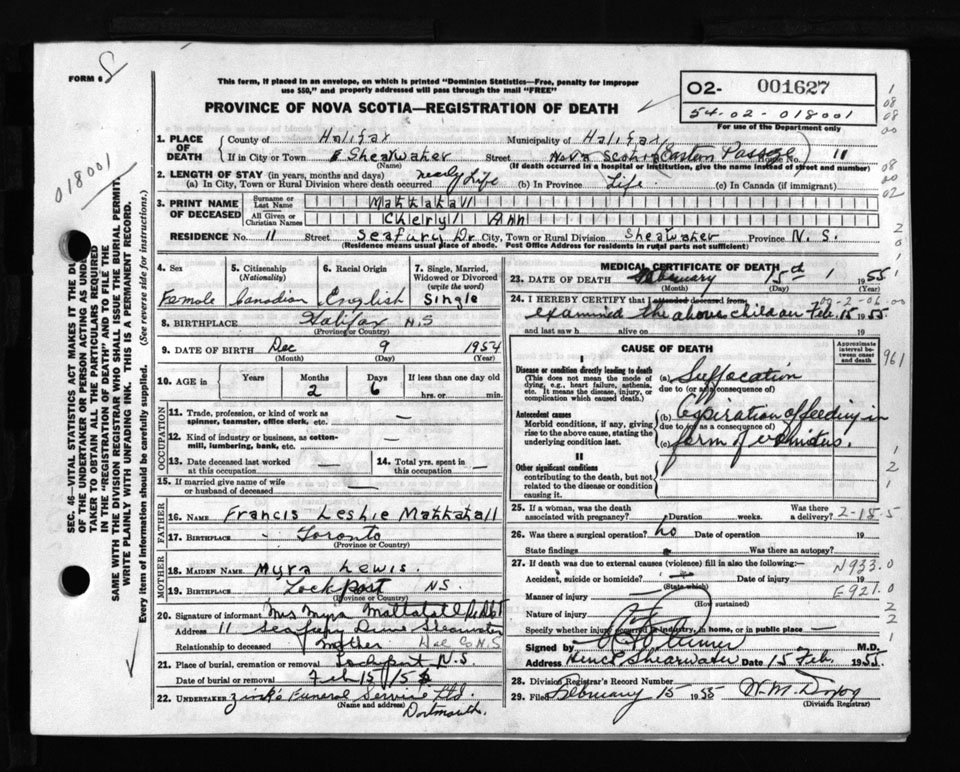 FORM 6
This form, if placed in an envelope, on which is printed "Dominion Statistics—Free, penalty for improper
use $50," and properly addressed will pass through the mail "FREE"
PROVINCE OF NOVA SCOTIA—REGISTRATION OF DEATH
02- 001627
54-02-018001
For use of the Department only
018001
SEC. 46—VITAL STATISTICS ACT MAKES IT THE DU
OF THE UNDERTAKER OR PERSON ACTING AS UNDE
TAKER TO OBTAIN ALL THE PARTICULARS REQUIRED
IN THE "REGISTRATION OF DEATH" AND TO FILE THE
SAME WITH THE DIVISION REGISTRAR WHO SHALL ISSUE THE BURIAL PERMIT.
WRITE PLAINLY WITH UNFADING INK. THIS IS A PERMANENT RECORD.
Every item of information should be carefully supplied. (See reverse side for instructions.)
1. PLACE OF DEATH
County of Halifax Municipality of Halifax
If in City or Town Shearwater Street Nova Scotia (Eastern Passage) House No. 11
(Name) (If death occurred in a hospital or institution, give the name instead of street and number)
2. LENGTH OF STAY (in years, months and days)
(a) In City, Town or Rural Division where death occurred nearly Life (b) In Province Life (c) In Canada (if immigrant)
3. PRINT NAME OF DECEASED
Surname or Last Name Mattatall
All Given or Christian Names Cheryll Ann
RESIDENCE No. 11 Street Seafury Dr City, Town or Rural Division Shearwater Province N.S.
(Residence means usual place of abode. Post Office Address for residents in rural parts not sufficient)
4. Sex Female
5. Citizenship (Nationality) Canadian
6. Racial Origin English
7. Single, Married, Widowed or Divorced (write the word) Single
8. BIRTHPLACE Halifax N.S
(Province or Country)
9. DATE OF BIRTH Dec 9 1954
(Month) (Day) (Year)
10. AGE in Years Months 2 Days 6 If less than one day old hrs. or min.
OCCUPATION
11. Trade, profession, or kind of work as spinner, teamster, office clerk, etc. —
12. Kind of industry or business, as cotton-mill, lumbering, bank, etc. —
13. Date deceased last worked at this occupation —
14. Total yrs. spent in this occupation —
15. If married give name of wife or husband of deceased —
FATHER
16. NAME Francis Leslie Mattatall
17. BIRTHPLACE Toronto
(Province or Country)
MOTHER
18. MAIDEN NAME Myra Lewis
19. BIRTHPLACE Lockport NS.
(Province or Country)
20. Signature of informant Mrs Myra Mattatall
Address 11 Seafury Drive Shearwater
Relationship to deceased Mother Hal Co N.S
21. Place of burial, cremation or removal Lockeport N.S.
Date of burial or removal Feb 15/55
22. UNDERTAKER Zink's Funeral Service Ltd.
(Name and address) Dartmouth.
MEDICAL CERTIFICATE OF DEATH
23. DATE OF DEATH February 15th 1955
(Month) (Day)
24. I HEREBY CERTIFY that I attended deceased from 09-2-06-00
examined the above child on Feb. 15 1955
and last saw h alive on 19
CAUSE OF DEATH
Approximate interval between onset and death
961
I
Disease or condition directly leading to death
(This does not mean the mode of dying, e.g., heart failure, asthenia, etc. It means the disease, injury, or complication which caused death.)
(a) Suffocation
due to (or as a consequence of)
Antecedent causes
Morbid conditions, if any, giving rise to the above cause, stating the underlying condition last.
(b) Aspiration of feeding in
due to (or as a consequence of)
(c) form of vomitus.
II
Other significant conditions
contributing to the death, but not related to the disease or condition causing it.
25. If a woman, was the death associated with pregnancy? Duration weeks. Was there a delivery? 2-18-5
26. Was there a surgical operation? no Date of operation 19
State findings Was there an autopsy?
27. If death was due to external causes (violence) fill in also the following:
N933.0
Accident, suicide or homicide? (State which) Date of injury 19
E921.0
Manner of injury —
(How sustained)
Nature of injury
Specify whether injury occurred in industry, in home, or in public place —
Signed by M.D.
Address Shearwater Date 15 Feb. 1955.
28. Division Registrar's Record Number
29. Filed February 15 1955
(Division Registrar)